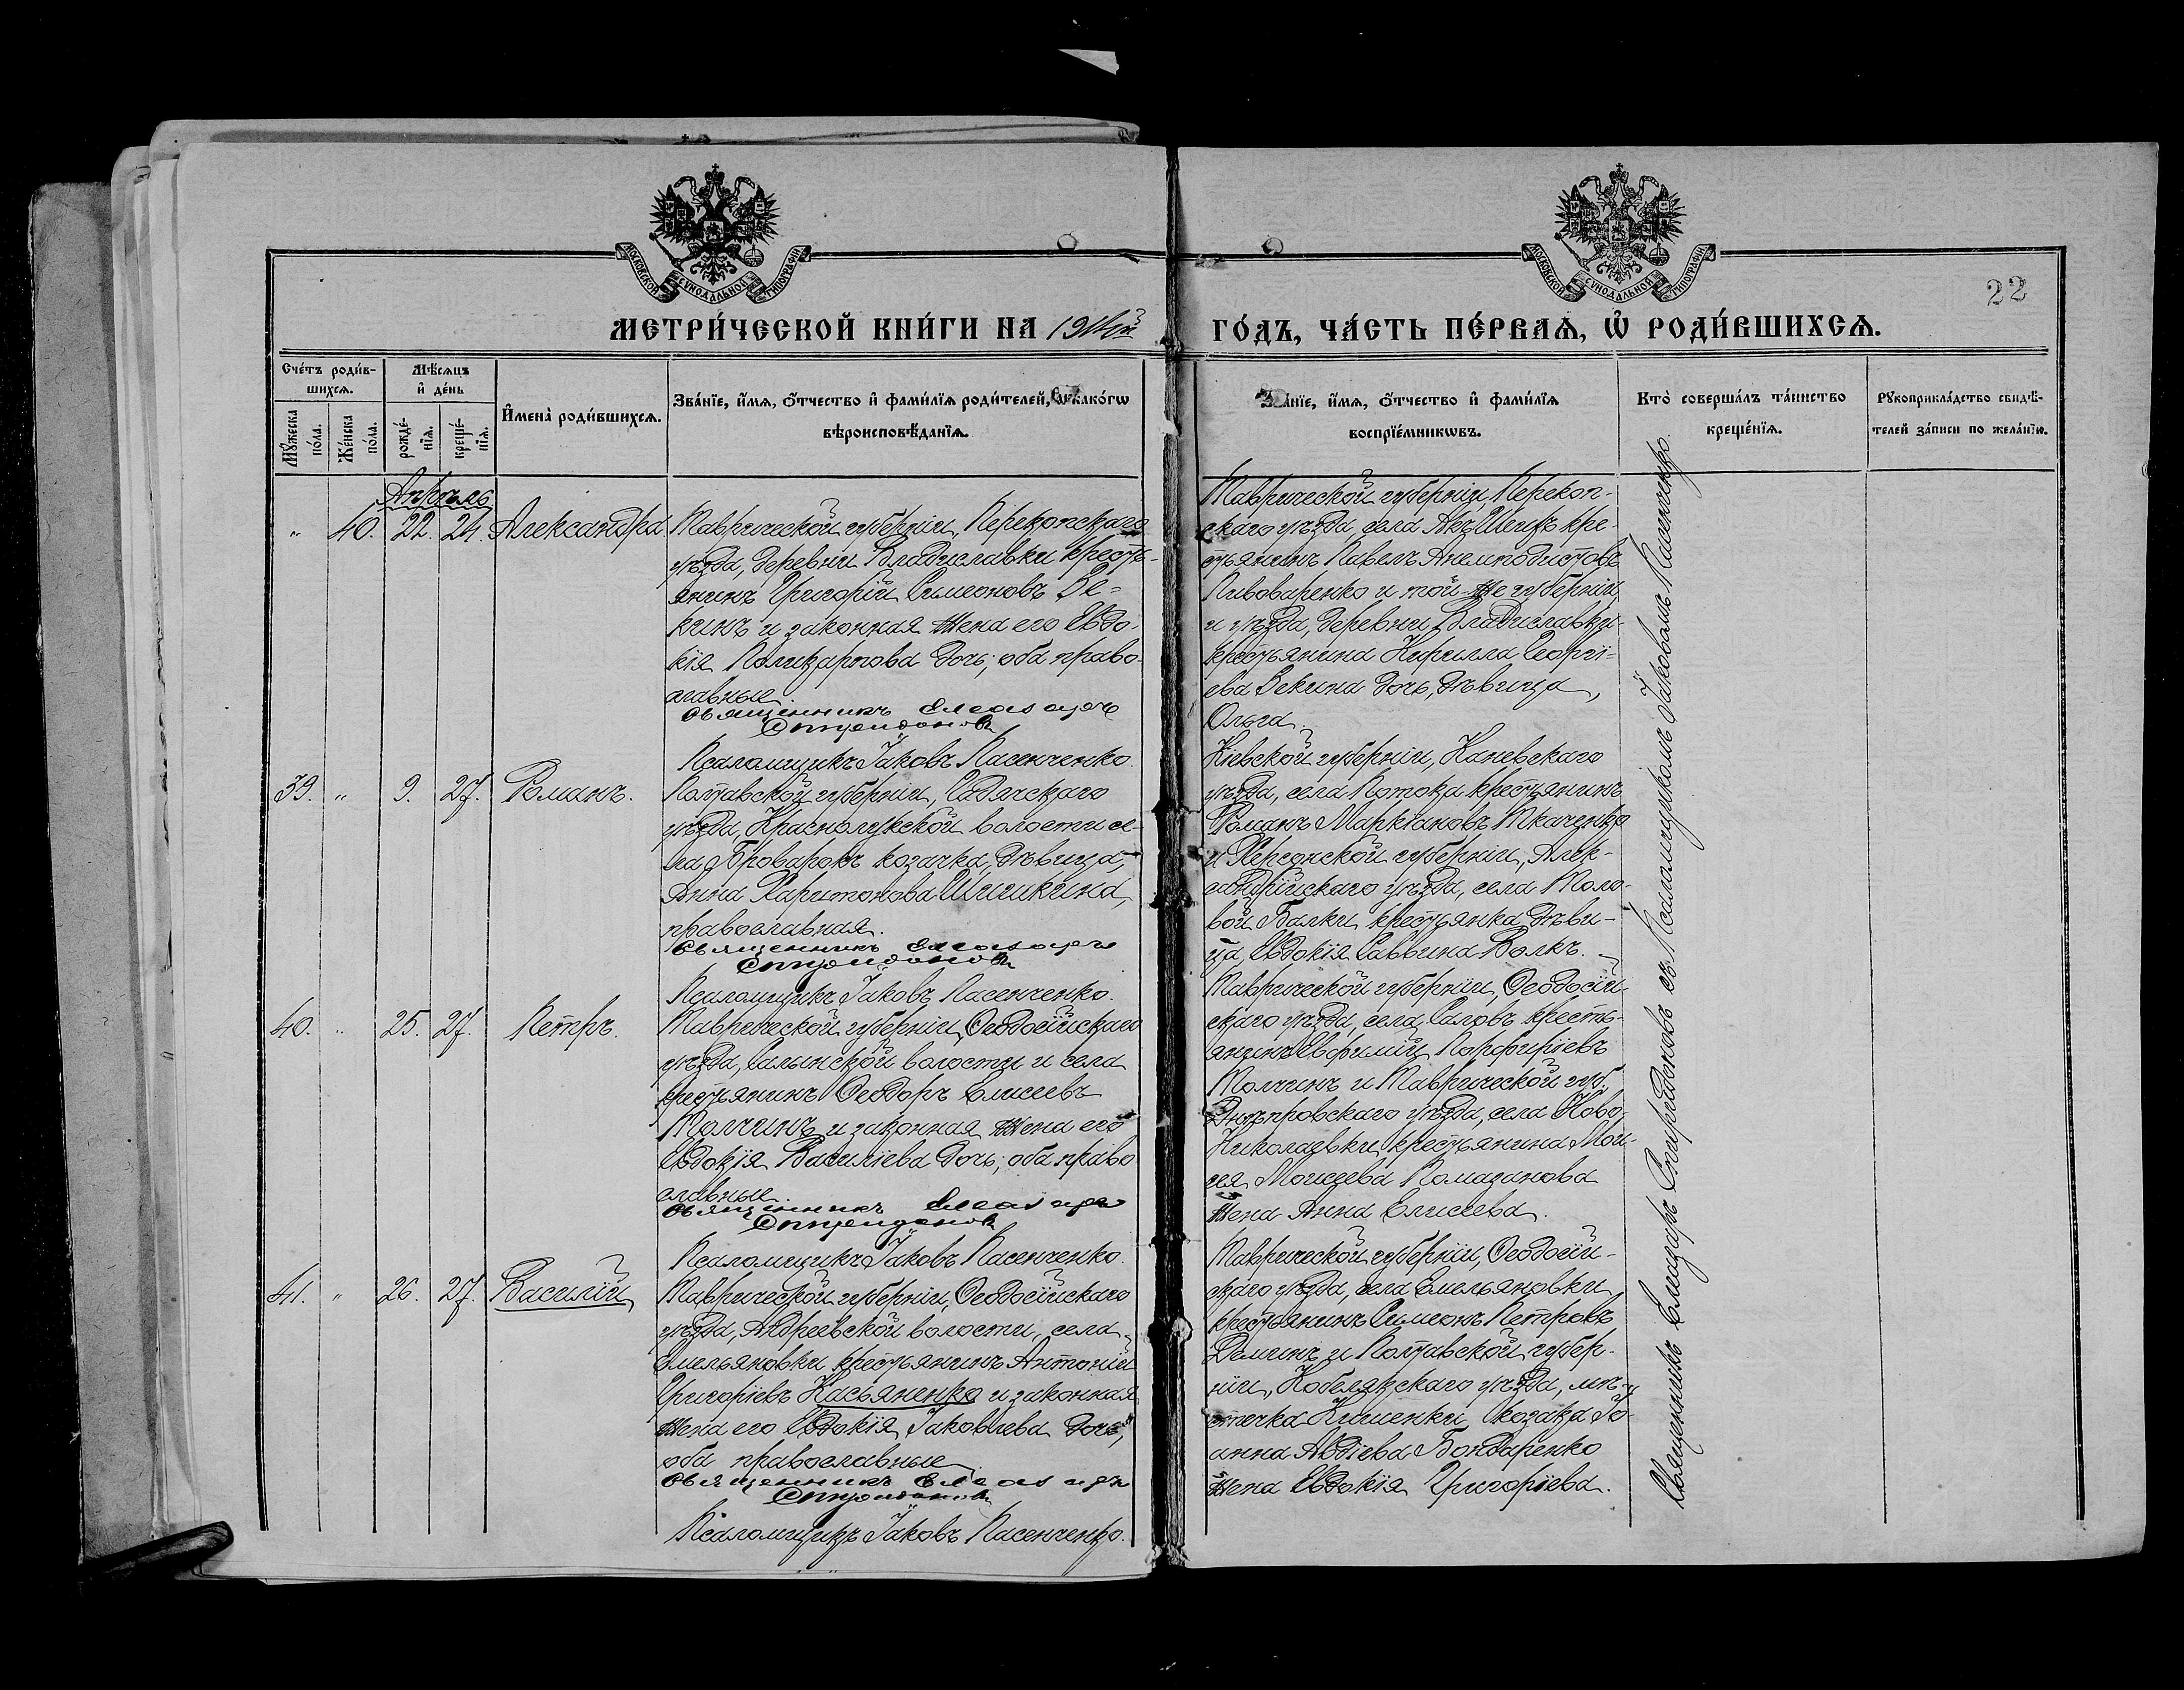 МОСКОВСКОЙ СѴНОДАЛЬНОЙ ТИПОГРАФІИ
МОСКОВСКОЙ СѴНОДАЛЬНОЙ ТИПОГРАФІИ
22
МЕТРИ́ЧЕСКОЙ КНИ́ГИ НА 19
ГО́ДЪ, ЧА́СТЬ ПЕ́РВАѦ, Ѡ҆ РОДИ́ВШИХСѦ.
Сче́тъ роди́в-
шихсѧ.
Мꙋ́жеска по́ла.
Же́нска по́ла.
Мѣ́сѧцъ
и҆ де́нь
рожде́-
нїѧ.
креще́-
нїѧ.
И҆мена̀ роди́вшихсѧ.
Зва́нїе, и҆́мѧ, ѻ҆́тчество и҆ фами́лїѧ роди́телей, и҆ како́гѡ
вѣроисповѣ́данїѧ.
Зва́нїе, и҆́мѧ, ѻ҆́тчество и҆ фами́лїѧ
воспрїе́мникѡвъ.
Кто̀ соверша́лъ та́инство
креще́нїѧ.
Рꙋкоприкла́дство свидѣ́-
телей за́писи по жела́нїю.
Апрѣль
" 40. 22. 24. Александра
Таврической губерніи, Перекопскаго
уѣзда, деревни Владиславки кресть-
янинъ Григорій Симеоновъ Ве-
кинъ и законная жена его Евдо-
кія Поликарпова дочь; оба право-
славные.
Священникъ Елеазаръ
Спиридоновъ
Псаломщикъ Іаковъ Пасенченко.
Таврической губерніи, Перекоп-
скаго уѣзда, села Акъ-Шейхъ кре-
стьянинъ Павелъ Анемподистовъ
Пивоваренко и той-же губерніи
и уѣзда, деревни Владиславки
крестьянина Кирилла Георгі-
ева Векина дочь, дѣвица,
Ольга.
39. " 9. 27. Романъ.
Полтавской губерніи, Гадячскаго
уѣзда, Краснолукской волости се-
ла Броварокъ козачка, дѣвица,
Анна Харитонова Шишкина,
православная.
Священникъ Елеазаръ
Спиридоновъ
Псаломщикъ Іаковъ Пасенченко.
Кіевской губерніи, Каневскаго
уѣзда, села Потока крестьянинъ
Романъ Маркіановъ Ткаченко
и Херсонской губерніи, Алек-
сандрійскаго уѣзда, села
вой Балки крестьянка дѣви-
ца, Евдокія Саввина Волкъ.
40. " 25. 27. Петръ.
Таврической губерніи, Ѳеодосійскаго
уѣзда, Салынской волости и села
крестьянинъ Ѳеодоръ Елисеевъ
Толчинъ и законная жена его
Евдокія Василіева дочь; оба право-
славные.
Священникъ Елеазаръ
Спиридоновъ
Псаломщикъ Іаковъ Пасенченко.
Таврической губерніи, Ѳеодосій-
скаго уѣзда, села крестъ-
янинъ Евфимій Порфиріевъ
Толчинъ и Таврической губ.
Днѣпровскаго уѣзда, села Ново-
Николаевки, крестьянина Мои-
сея Моисеева Помазанова
жена Анна Елисеева.
41. " 26. 27. Василій
Таврической губерніи, Ѳеодосійскаго
уѣзда, Андреевской волости, села
Емельяновки крестьянинъ Антоній
Григоріевъ Касьяненко и законная
жена его Евдокія Іаковлева дочь,
оба православные.
Священникъ Елеазаръ
Спиридоновъ
Псаломщикъ Іаковъ Пасенченко.
Таврической губерніи, Ѳеодосій-
скаго уѣзда, села Емельяновки
крестьянинъ Симеонъ Петровъ
Деминъ и Полтавской губер-
ніи, Кобелякскаго уѣзда, мѣ-
стечка Кишенки, козака Іо-
анна Авдіева Бондаренко
жена Евдокія Григоріева.
Священникъ Елеазаръ Спиридоновъ съ Псаломщикомъ Іаковомъ Пасенченко.